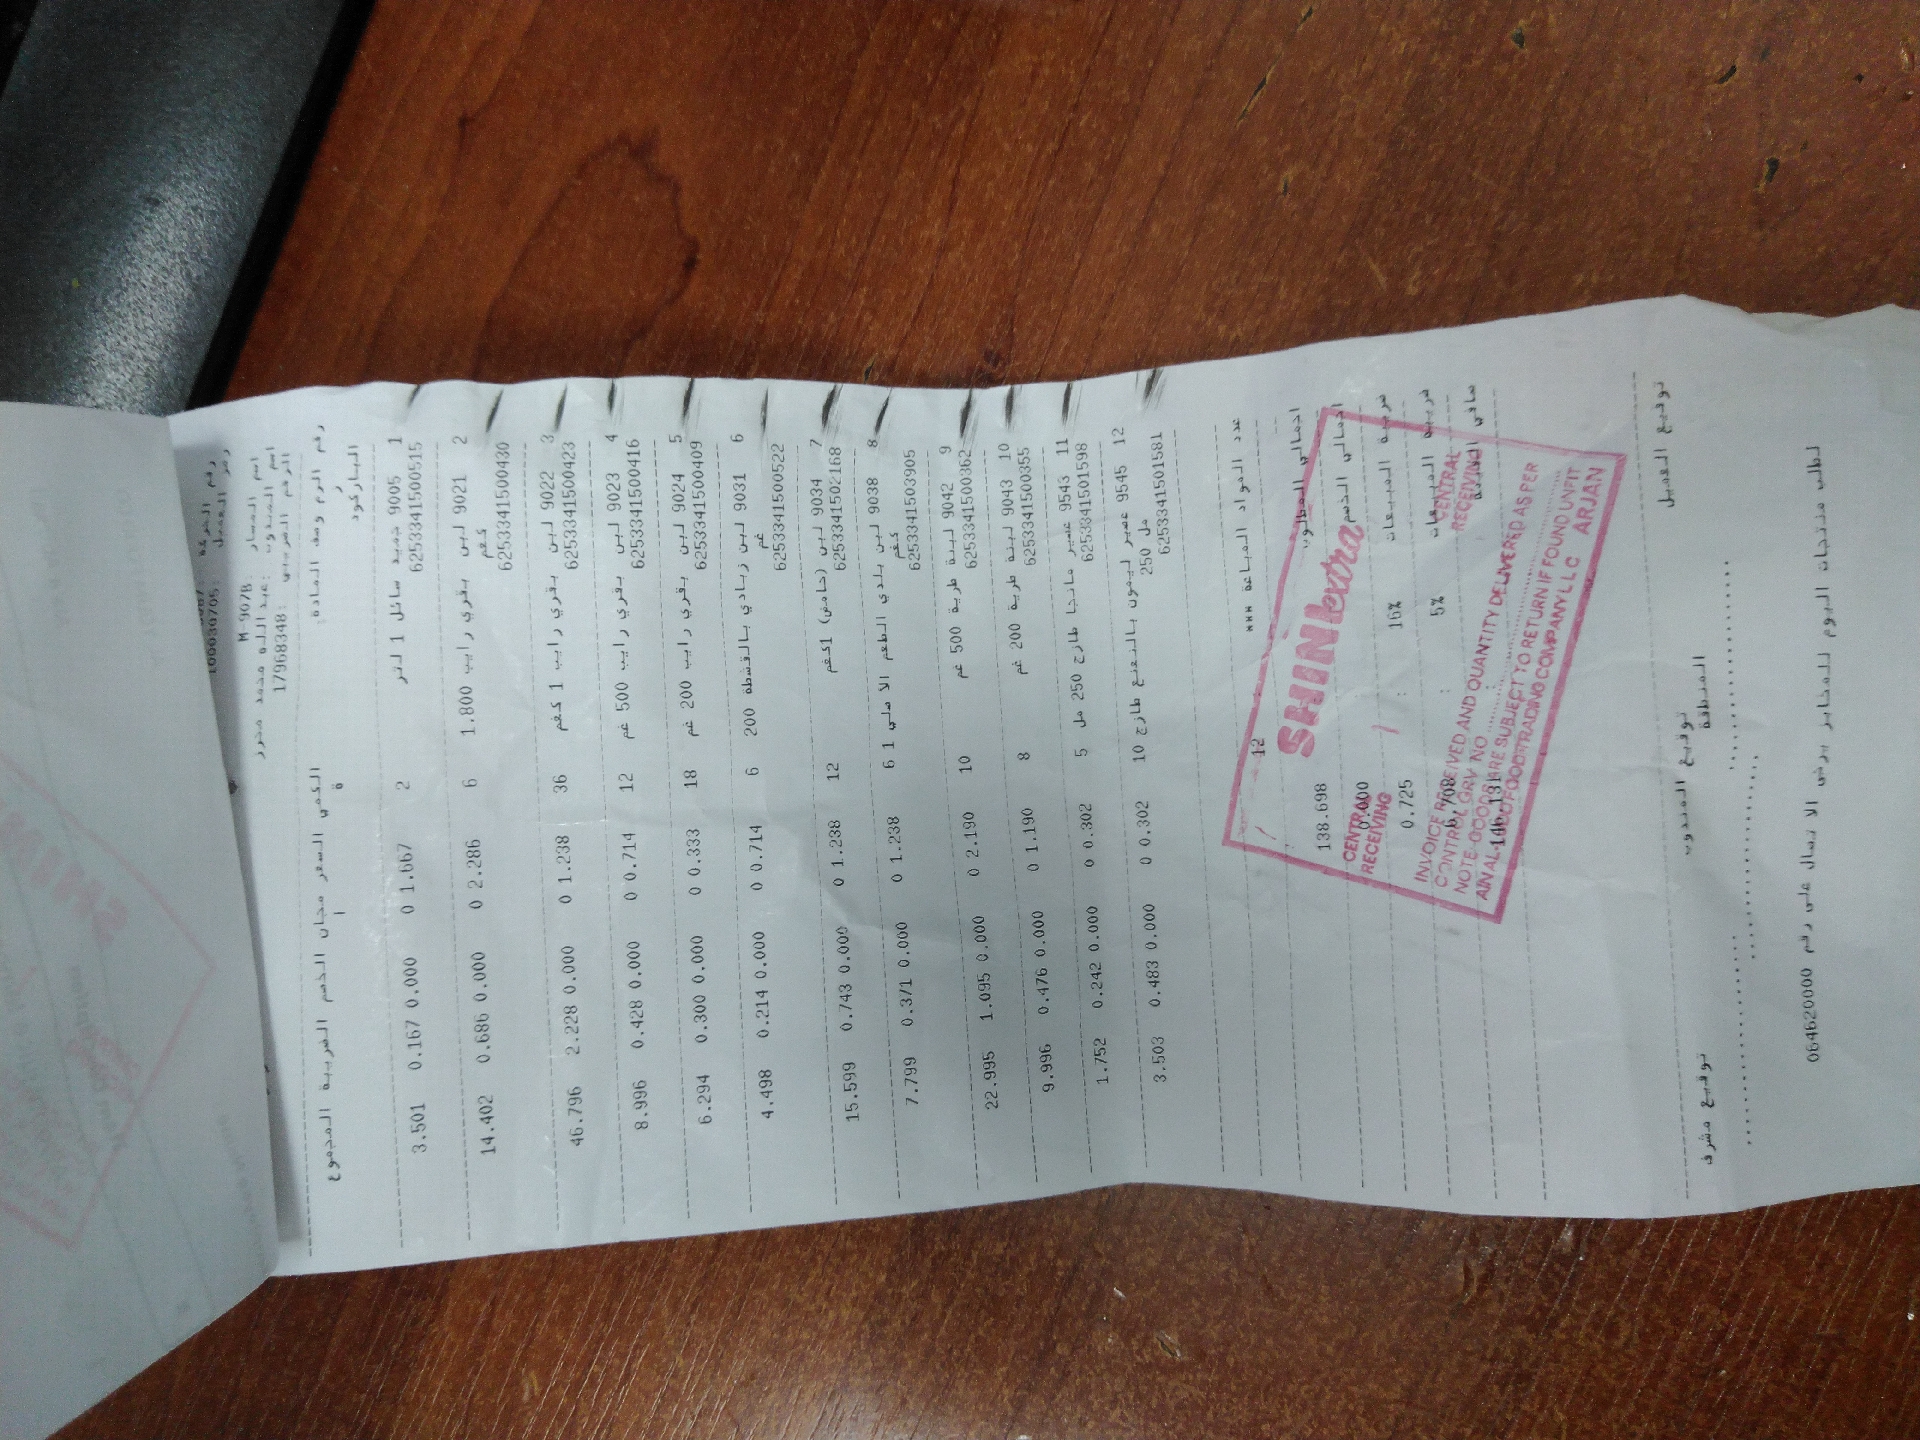 رقم العميل: 100030705
اسم المسار: M-907B
اسم المندوب: عبد الله محمد محرر
الرقم الضريبي: 17968348
رقم الرمز وصف المادة الكمية السعر مجان الخصم الضريبة المجموع
الباركود
1 9005 جميد سائل 1 لتر 2 1.667 0 0.000 0.167 3.501
6253341500515
2 9021 لبن بقري رايب 1.800 6 2.286 0 0.000 0.686 14.402
كغم
6253341500430
3 9022 لبن بقري رايب 1 كغم 36 1.238 0 0.000 2.228 46.796
6253341500423
4 9023 لبن بقري رايب 500 غم 12 0.714 0 0.000 0.428 8.996
6253341500416
5 9024 لبن بقري رايب 200 غم 18 0.333 0 0.000 0.300 6.294
6253341500409
6 9031 لبن زبادي بالقشطة 200 6 0.714 0 0.000 0.214 4.498
غم
6253341500522
7 9034 لبن (حامض) 1كغم 12 1.238 0 0.000 0.743 15.599
6253341502168
8 9038 لبن بلدي الطعم الاصلي 1 6 1.238 0 0.000 0.371 7.799
كغم
6253341503905
9 9042 لبنة طرية 500 غم 10 2.190 0 0.000 1.095 22.995
6253341500362
10 9043 لبنة طرية 200 غم 8 1.190 0 0.000 0.476 9.996
6253341500355
11 9543 عصير مانجا طازج 250 مل 5 0.302 0 0.000 0.242 1.752
6253341501598
12 9545 عصير ليمون بالنعنع طازج 10 0.302 0 0.000 0.483 3.503
250 مل
6253341501581
عدد المواد المباعة *** 12
اجمالي المطلوب 138.698
اجمالي الخصم 0.000
ضريبة المبيعات 16% : 0.725
ضريبة المبيعات 5% : 6.708
صافي 146.131
SHINIextra
CENTRAL RECEIVING
CENTRAL RECEIVING
INVOICE RECEIVED AND QUANTITY DELIVERED AS PER
CONTROL GRV NO
NOTE-GOODS ARE SUBJECT TO RETURN IF FOUND UNFIT
TRADING COMPANY LLC ARJAN
توقيع العميل توقيع المندوب توقيع مشرف
المنطقة
لطلب منتجات اليوم للمخابز يرجى الاتصال على رقم 064620000